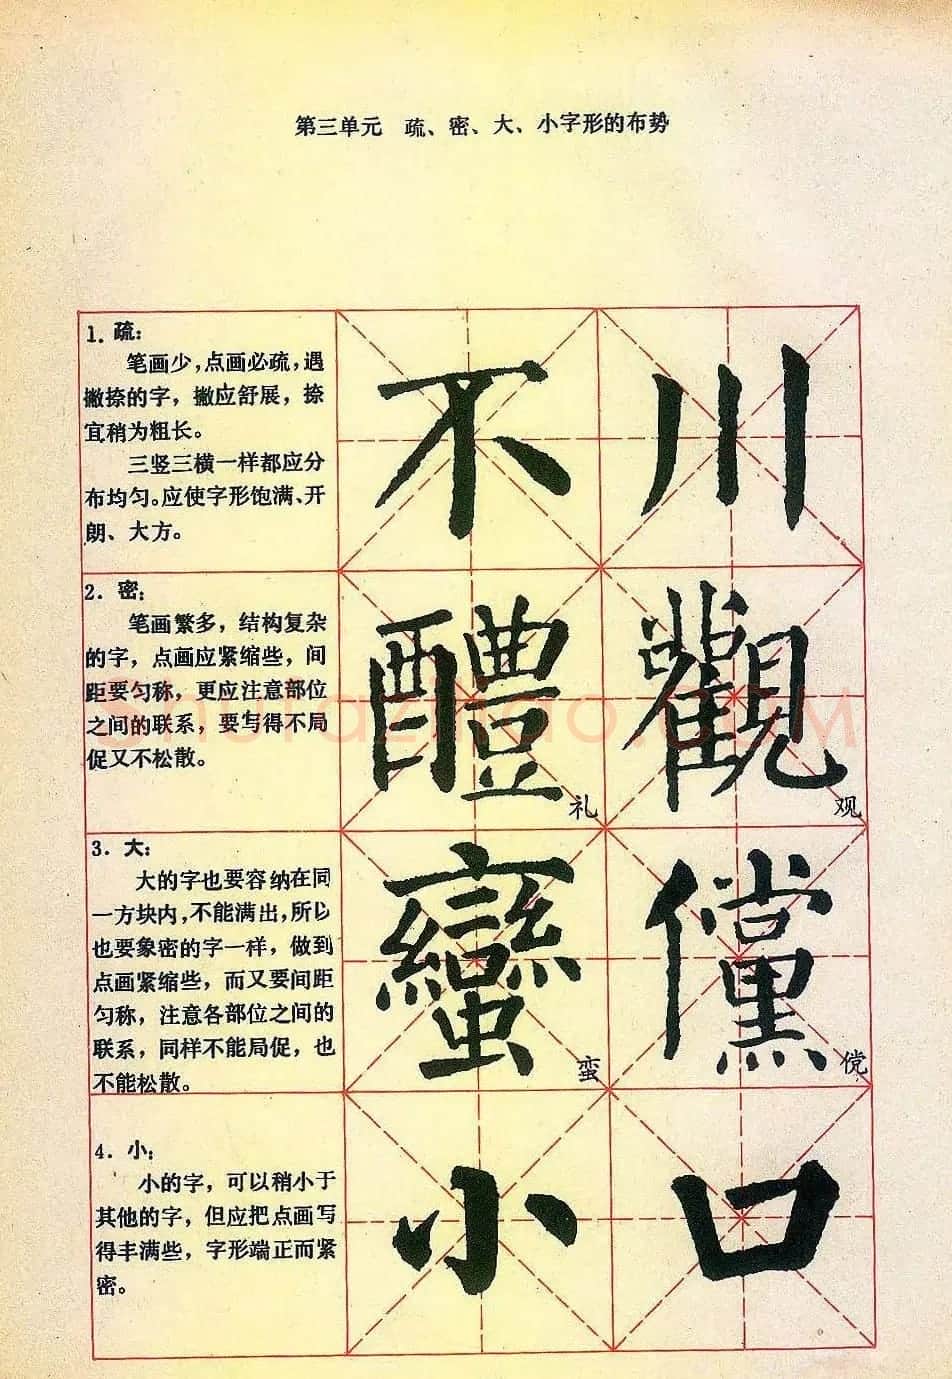 第三单元　疏、密、大、小字形的布势
1. 疏：
笔画少，点画必疏，遇
撇捺的字，撇应舒展，捺
宜稍为粗长。
三竖三横一样都应分
布均匀。应使字形饱满、开
朗、大方。
不 川
2. 密：
笔画繁多，结构复杂
的字，点画应紧缩些，间
距要匀称，更应注意部位
之间的联系，要写得不局
促又不松散。
醴 觀
礼 观
3. 大：
大的字也要容纳在同
一方块内，不能满出，所以
也要象密的字一样，做到
点画紧缩些，而又要间距
匀称，注意各部位之间的
联系，同样不能局促，也
不能松散。
蠻 儻
蛮 傥
4. 小：
小的字，可以稍小于
其他的字，但应把点画写
得丰满些，字形端正而紧
密。
小 口
shufaziliao.com